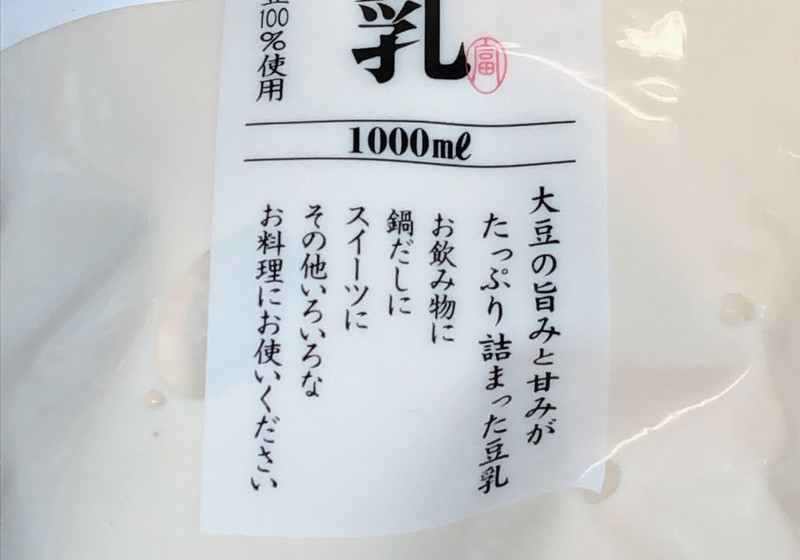 乳
富
100%使用
1000mℓ
大豆の旨みと甘みが
たっぷり詰まった豆乳
お飲み物に
鍋だしに
スイーツに
その他いろいろな
お料理にお使いください